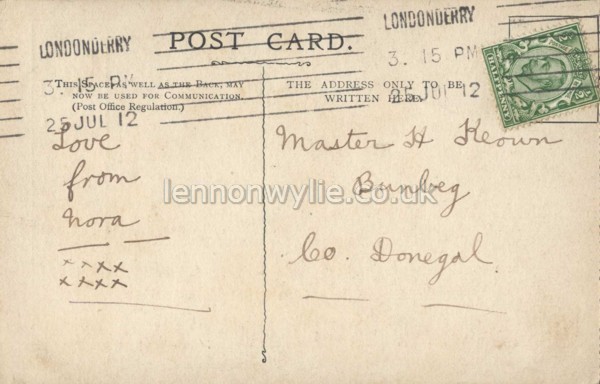 LONDONDERRY
3. 15 PM
25 JUL 12
LONDONDERRY
3. 15 PM
25 JUL 12
POST CARD.
THIS SPACE, AS WELL AS THE BACK, MAY
NOW BE USED FOR COMMUNICATION.
(Post Office Regulation.)
THE ADDRESS ONLY TO BE
WRITTEN HERE.
Love
from
Nora
x x x x
x x x x
Master H Keown
Bunbeg
Co. Donegal.
lennonwylie.co.uk